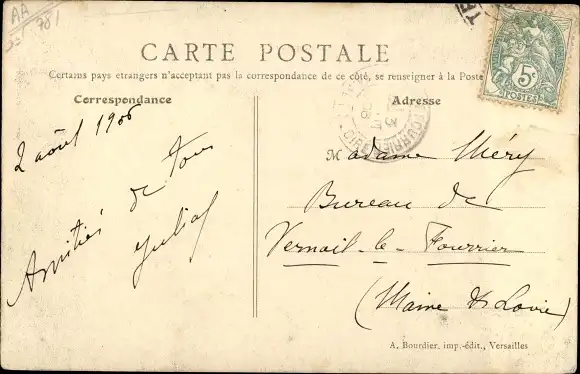 AA
781
CARTE POSTALE
Certains pays etrangers n'acceptant pas la correspondance de ce côté, se renseigner à la Poste
Correspondance
Adresse
2 août 1906
Amitiés de tous
Madame Méry
Bureau de
Vernoil-le-Fourrier
(Maine & Loire)
5c
POSTES
A. Bourdier, imp.-édit., Versailles